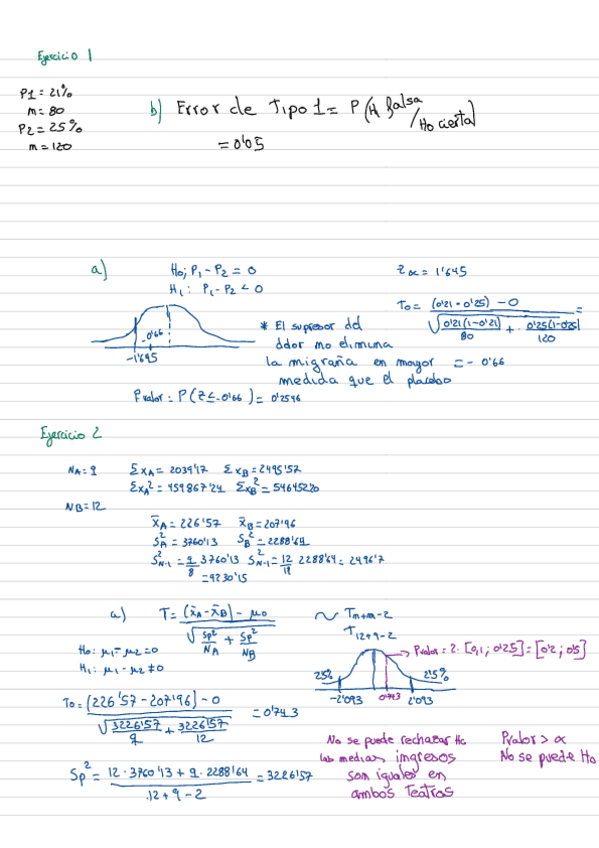 Ejercicio 1
P1 = 21%
m = 80
P2 = 25%
m = 120
b) Error de Tipo 1 = P(H falsa / Ho cierta)
= 0'05
a) Ho; P1 - P2 = 0
H1: P1 - P2 < 0
zα = 1'645
To = (0'21 - 0'25) - 0 / √ 0'21(1-0'21)/80 + 0'25(1-0'25)/120 =
= - 0'66
-0'66
-1'645
* El supresor del
dolor no elimina
la migraña en mayor
medida que el placebo
Pvalor = P(Z ≤ -0'66) = 0'2546
Ejercicio 2
NA = 9 ΣxA = 2039'17 ΣxB = 2495'57
ΣxA² = 459867'24 ΣxB² = 54645220
NB = 12
x̄A = 226'57 x̄B = 207'96
SA² = 3760'13 SB² = 2288'64
S²N-1 = 9/8 3760'13 S²N-1 = 12/11 2288'64 = 2496'7
= 4230'15
a) T = (x̄A - x̄B) - μo / √ Sp²/NA + Sp²/NB ~ Tn+m-2
T12+9-2
Ho: μ1 - μ2 = 0
H1: μ1 - μ2 ≠ 0
Pvalor = 2 · [0,1 ; 0'25] = [0'2 ; 0'5]
2'5% 2'5%
-2'093 0'743 2'093
To = (226'57 - 207'96) - 0 / √ 3226'57/9 + 3226'57/12 = 0'743
Sp² = 12 · 3760'13 + 9 · 2288'64 / 12 + 9 - 2 = 3226'57
No se puede rechazar Ho
las medias ingresos
son iguales en
ambos Teatros
Pvalor > α
No se puede Ho